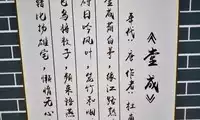 《堂成》
年代:唐 作者:杜
堂成荫白茅,缘江路熟
碍日吟风叶,笼竹和烟
飞乌将数子,频来语燕
错比扬雄宅,懒惰无心